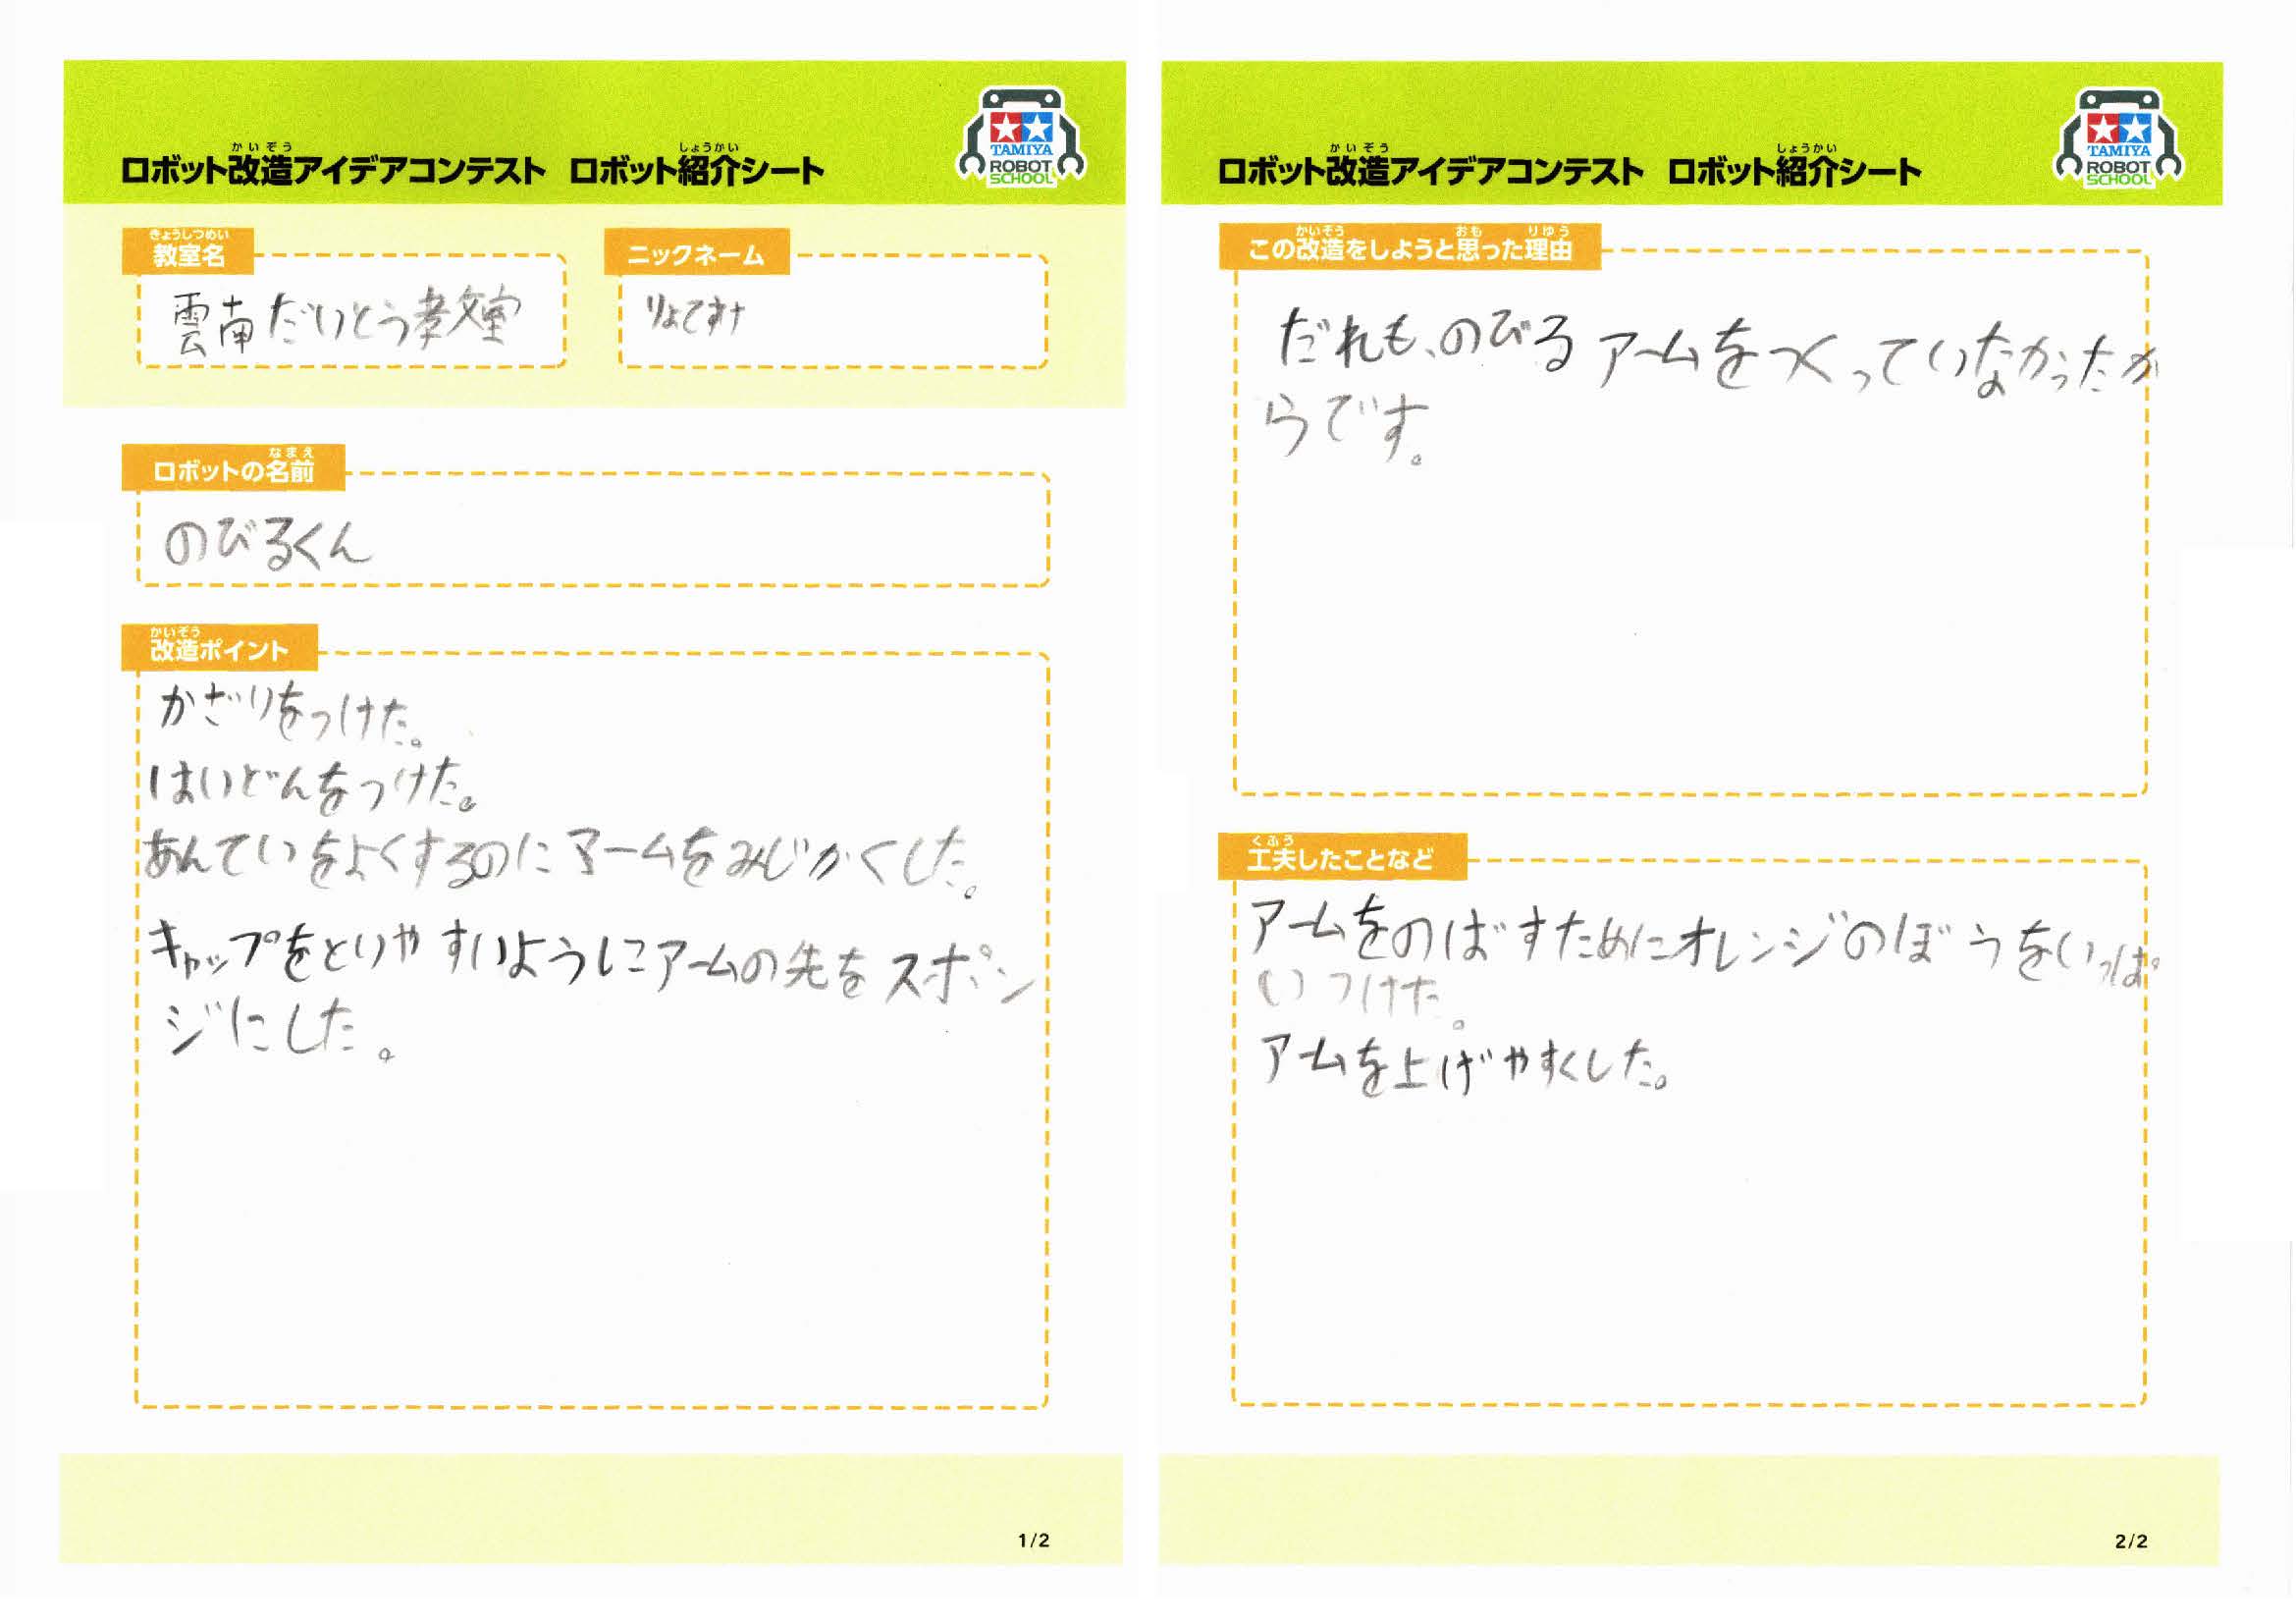 ロボット改造アイデアコンテスト ロボット紹介シート
かいぞう
しょうかい
TAMIYA
ROBOT
SCHOOL
きょうしつめい
教室名
雲南だいとう教室
ニックネーム
なまえ
ロボットの名前
のびるくん
かいぞう
改造ポイント
かざりをつけた。
はいどんをつけた。
あんていをよくするのにアームをみじかくした。
キャップをとりやすいようにアームの先をスポン
ジにした。
1/2
ロボット改造アイデアコンテスト ロボット紹介シート
かいぞう
しょうかい
TAMIYA
ROBOT
SCHOOL
かいぞう おも りゆう
この改造をしようと思った理由
だれも、のびるアームをつくっていなかったか
らです。
くふう
工夫したことなど
アームをのばすためにオレンジのぼうをいっぱ
いつけた。
アームを上げやすくした。
2/2